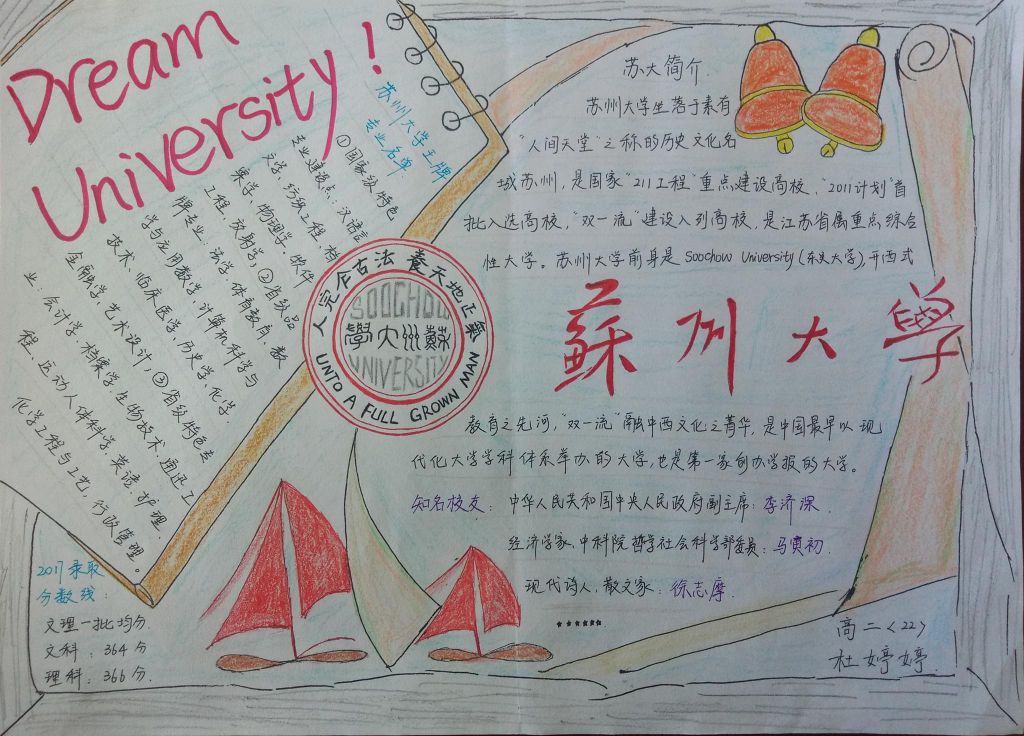 Dream
University!
苏州大学王牌
专业名单:
①国家级特色
专业建设点:汉语言
文学、纺织工程、档
案学、物理学、软件
工程、放射学,②省级品
牌专业:法学、体育教育、数
学与应用数学、计算机科学与
技术、临床医学、历史学、化学、
金融学、艺术设计,③省级特色专
业:会计学、档案学、生物技术、通迅工
程、运动人体科学、英语、护理、
化学工程与工艺、行政管理。
2017录取
分数线:
文理一批均分.
文科:364分
理科:366分.
养天地正氣 法古今完人
SOOCHOW
蘇州大學
UNIVERSITY
UNTO A FULL GROWN MAN
苏大简介.
苏州大学坐落于素有
“人间天堂”之称的历史文化名
城苏州,是国家“211工程”重点建设高校、“2011计划”首
批入选高校,“双一流”建设入列高校,是江苏省属重点综合
性大学。苏州大学前身是Soochow University(东吴大学),开西式
蘇州大學
教育之先河,“双一流”融中西文化之菁华,是中国最早以现
代化大学学科体系举办的大学,也是第一家创办学报的大学。
知名校友:中华人民共和国中央人民政府副主席:李济深
经济学家、中科院哲学社会科学部委员:马寅初
现代诗人、散文家:徐志摩.
......
高二<22>
杜婷婷